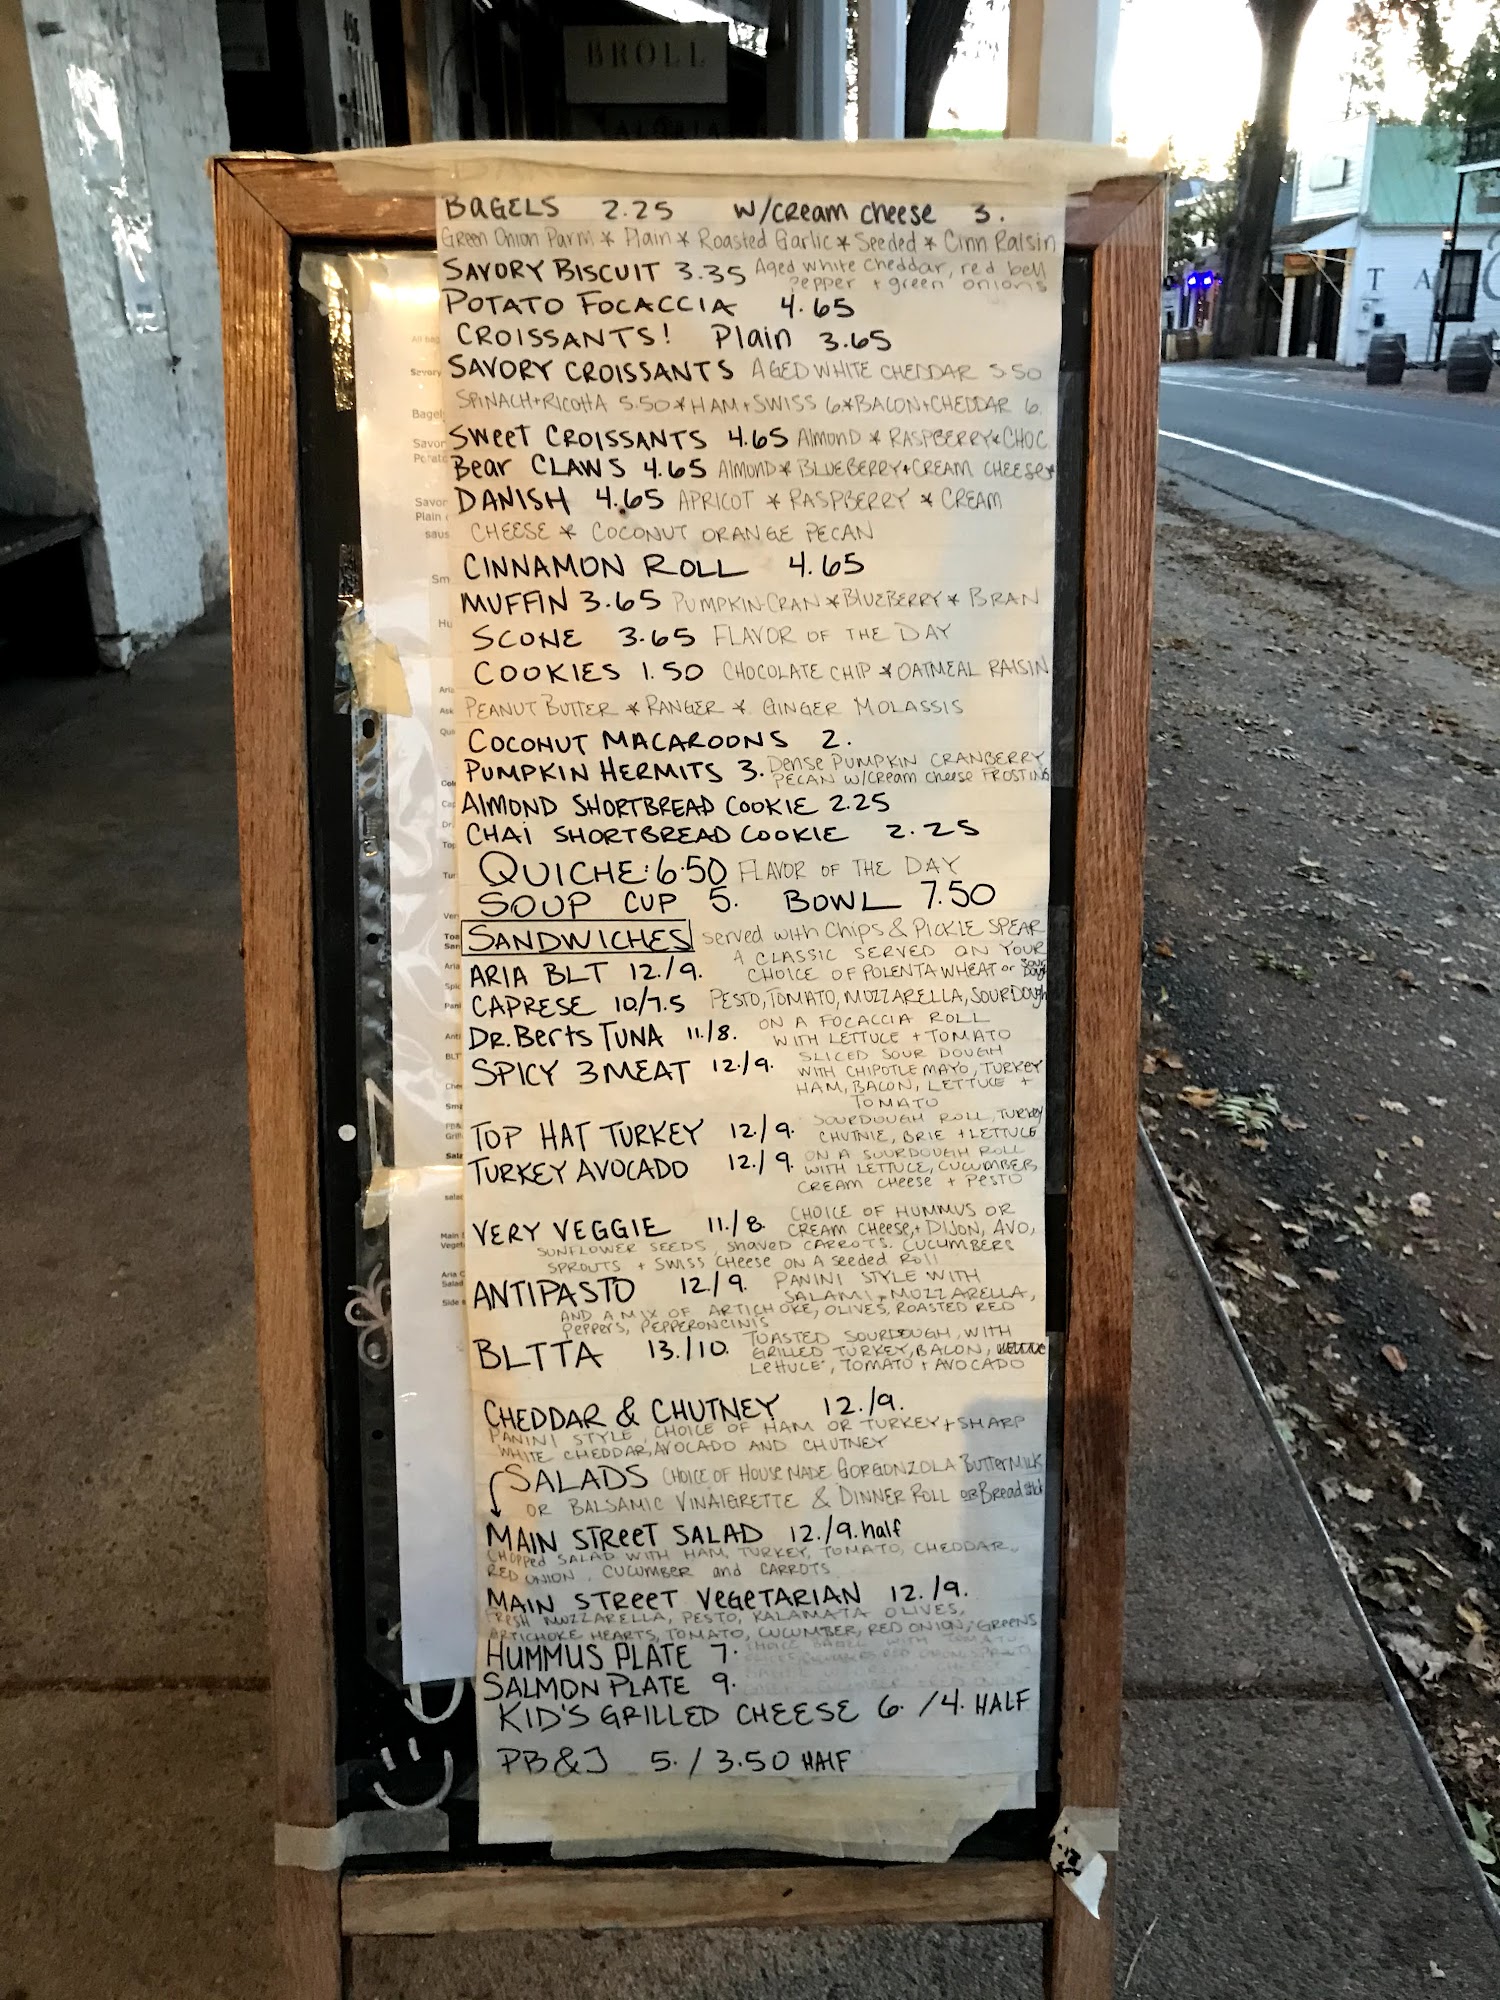 BROLL
BAGELS 2.25 W/CREAM CHEESE 3.
Green Onion Parm * Plain * Roasted Garlic * Seeded * Cinn Raisin
SAVORY BISCUIT 3.35 Aged white cheddar, red bell
pepper + green onions
POTATO FOCACCIA 4.65
CROISSANTS! Plain 3.65
SAVORY CROISSANTS AGED WHITE CHEDDAR 5.50
SPINACH+RICOTTA 5.50 * HAM+SWISS 6 * BACON+CHEDDAR 6.
SWEET CROISSANTS 4.65 Almond * RASPBERRY * CHOC
Bear CLAWS 4.65 Almond * BLUEBERRY + CREAM CHEESE *
DANISH 4.65 APRICOT * RASPBERRY * CREAM
CHEESE * COCONUT ORANGE PECAN
CINNAMON ROLL 4.65
MUFFIN 3.65 PUMPKIN-CRAN * BLUEBERRY * BRAN
SCONE 3.65 FLAVOR OF THE DAY
COOKIES 1.50 CHOCOLATE CHIP * OATMEAL RAISIN
PEANUT BUTTER * RANGER * GINGER MOLASSIS
COCONUT MACAROONS 2.
PUMPKIN HERMITS 3. Dense PUMPKIN CRANBERRY
PECAN W/CREAM CHEESE FROSTING
ALMOND SHORTBREAD COOKIE 2.25
CHAI SHORTBREAD COOKIE 2.25
QUICHE: 6.50 FLAVOR OF THE DAY
SOUP CUP 5. BOWL 7.50
SANDWICHES served with CHIPS & PICKLE SPEAR
ARIA BLT 12./9. A CLASSIC SERVED ON YOUR
CHOICE OF POLENTA WHEAT or SOUR DOUGH
CAPRESE 10/7.5 PESTO, TOMATO, MOZZARELLA, SOURDOUGH
DR. BERTS TUNA 11./8. ON A FOCACCIA ROLL
WITH LETTUCE + TOMATO
SPICY 3 MEAT 12./9. SLICED SOUR DOUGH
WITH CHIPOTLE MAYO, TURKEY
HAM, BACON, LETTUCE +
TOMATO
TOP HAT TURKEY 12./9. SOURDOUGH ROLL, TURKEY
CHUTNIE, BRIE + LETTUCE
TURKEY AVOCADO 12./9. ON A SOURDOUGH ROLL
WITH LETTUCE, CUCUMBER,
CREAM CHEESE + PESTO
VERY VEGGIE 11./8. CHOICE OF HUMMUS OR
CREAM CHEESE, + DIJON, AVO,
SUNFLOWER SEEDS, SHAVED CARROTS, CUCUMBERS
SPROUTS + SWISS CHEESE ON A SEEDED ROLL
ANTIPASTO 12./9. PANINI STYLE WITH
SALAMI, MOZZARELLA,
AND A MIX OF ARTICHOKE, OLIVES, ROASTED RED
PEPPERS, PEPPERONCINIS
BLTTA 13./10. TOASTED SOURDOUGH, WITH
GRILLED TURKEY, BACON,
LETTUCE, TOMATO + AVOCADO
CHEDDAR & CHUTNEY 12./9.
PANINI STYLE, CHOICE OF HAM OR TURKEY + SHARP
WHITE CHEDDAR, AVOCADO AND CHUTNEY
SALADS CHOICE OF HOUSE MADE GORGONZOLA BUTTERMILK
OR BALSAMIC VINAIGRETTE & DINNER ROLL OR Bread stick
MAIN STREET SALAD 12./9. half
CHOPPED SALAD WITH HAM, TURKEY, TOMATO, CHEDDAR,
RED ONION, CUCUMBER and CARROTS
MAIN STREET VEGETARIAN 12./9.
FRESH MOZZARELLA, PESTO, KALAMATA OLIVES,
ARTICHOKE HEARTS, TOMATO, CUCUMBER, RED ONION, GREENS
HUMMUS PLATE 7.
SALMON PLATE 9.
KID'S GRILLED CHEESE 6. /4. HALF
PB&J 5. / 3.50 HALF
T A